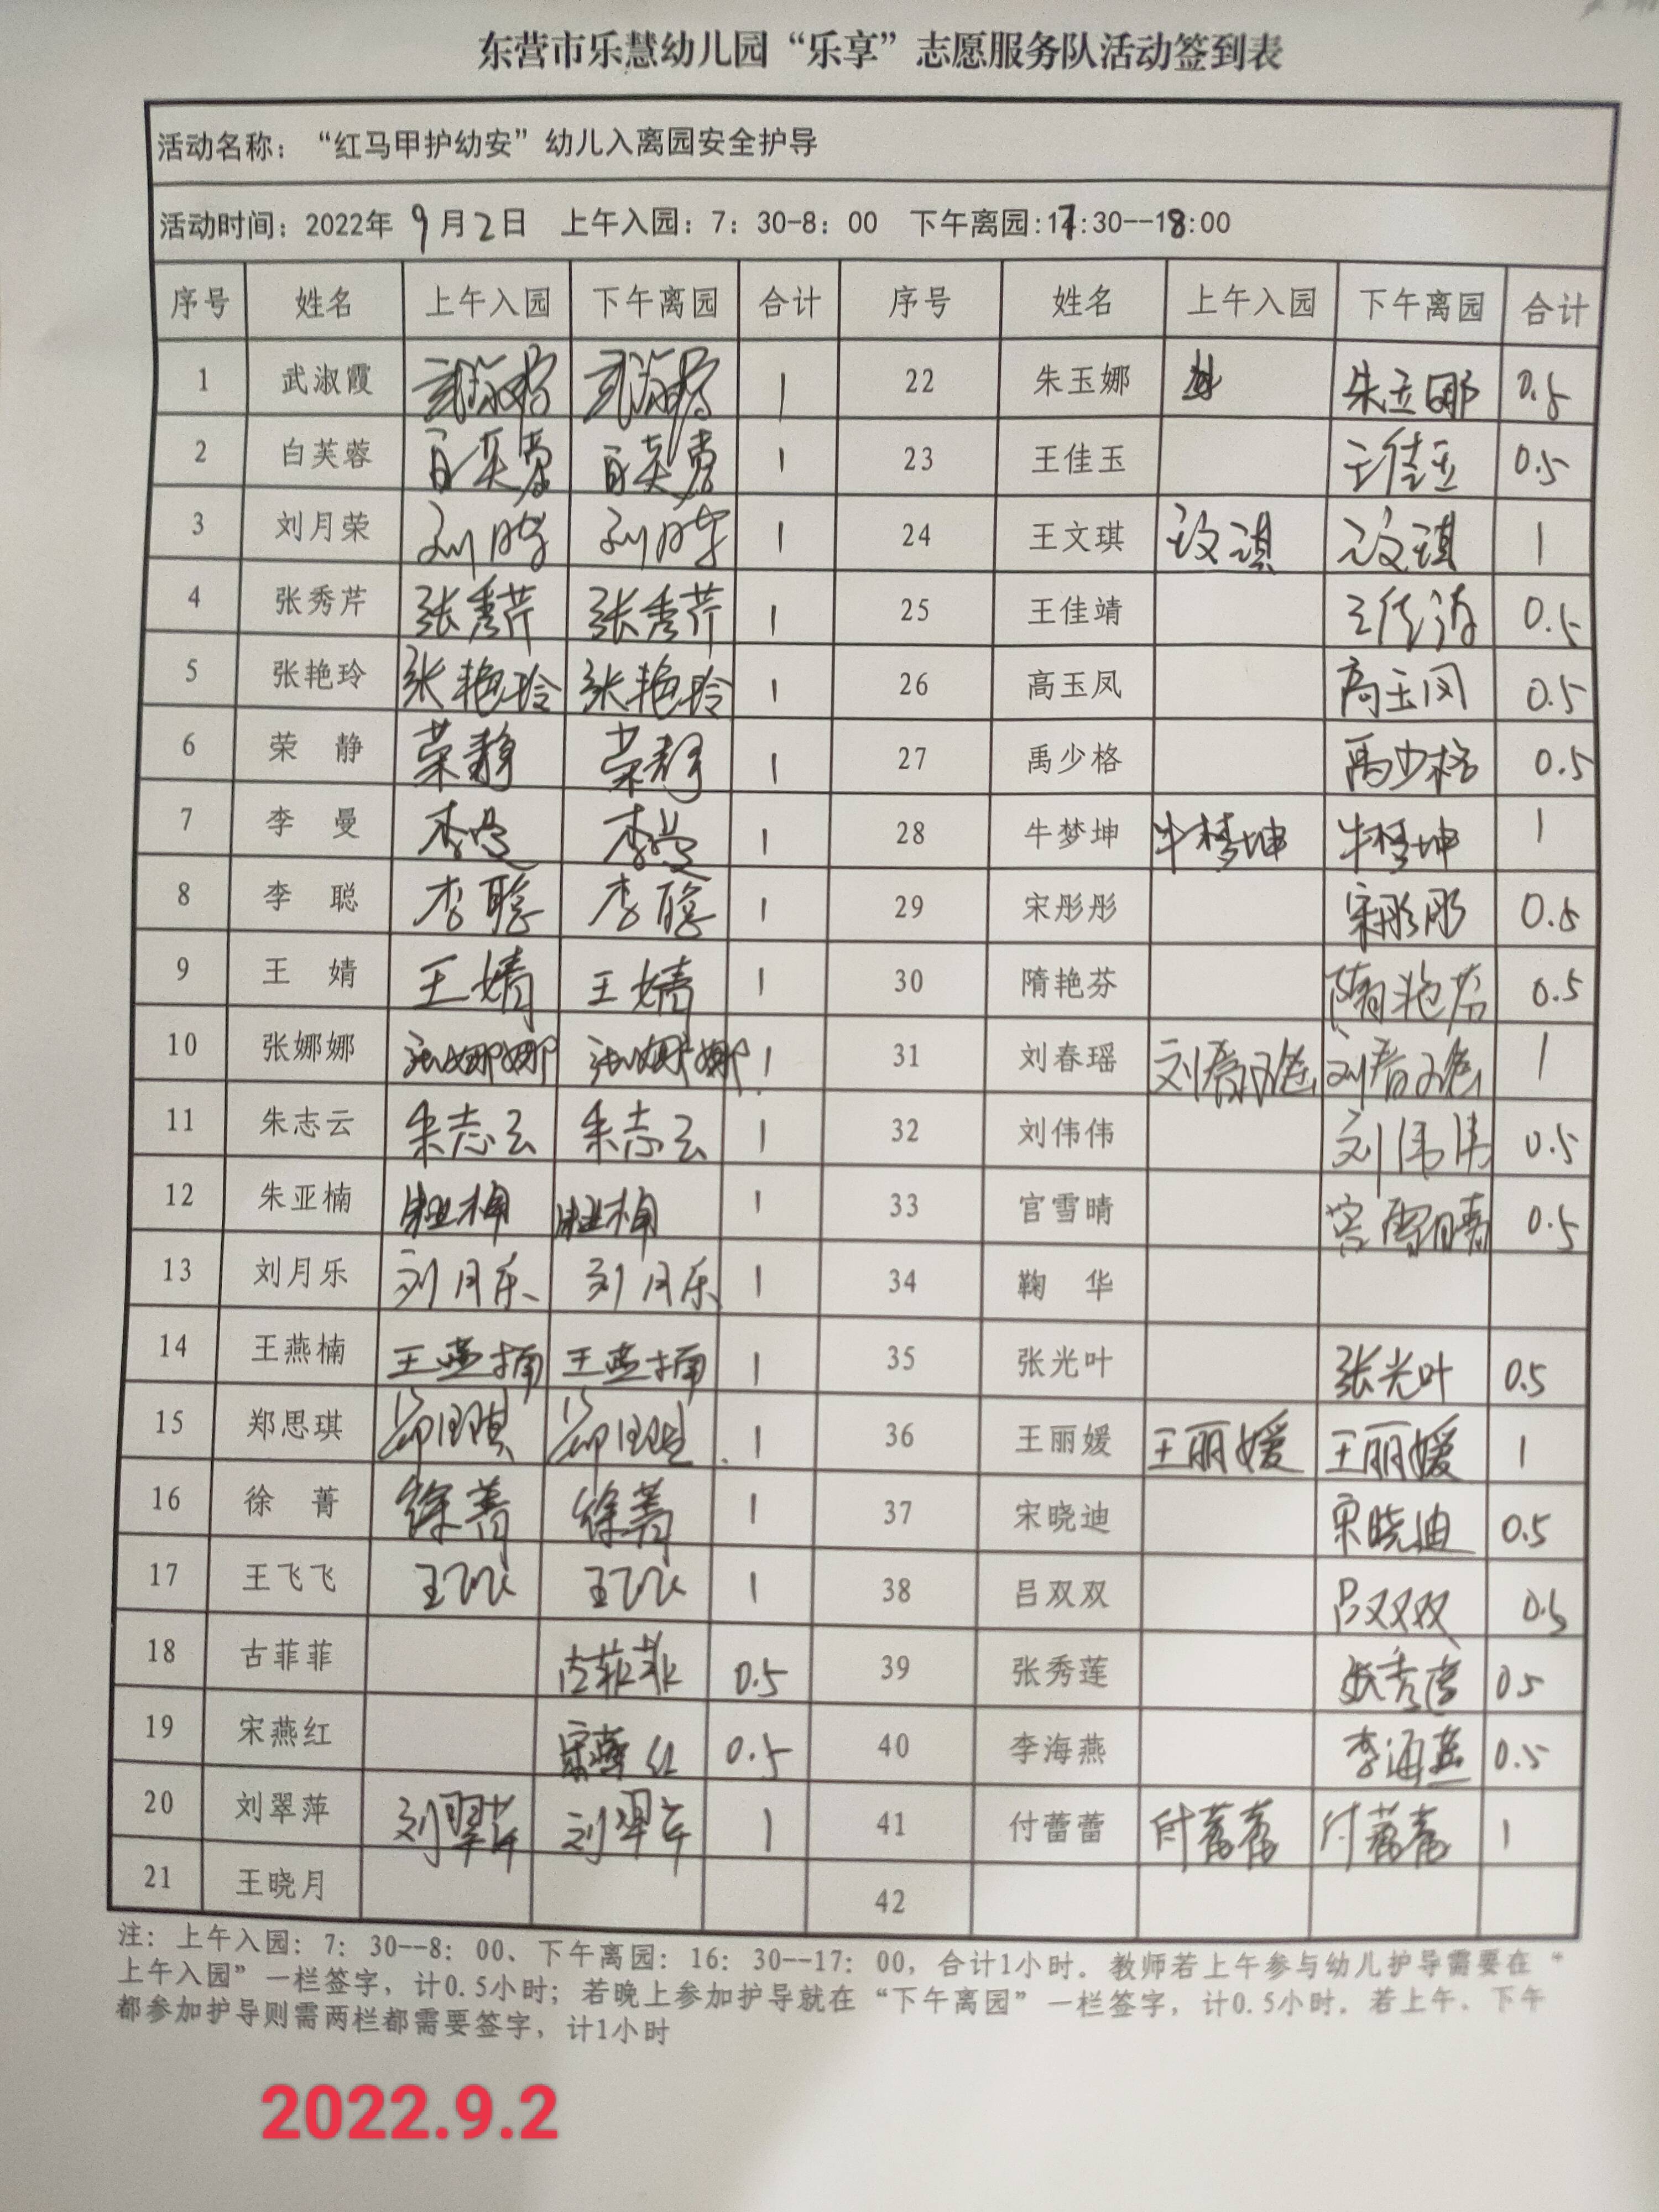 东营市乐慧幼儿园“乐享”志愿服务队活动签到表
活动名称：“红马甲护幼安”幼儿入离园安全护导
活动时间：2022年 9月2日 上午入园：7：30-8：00 下午离园:17:30--18:00
序号 姓名 上午入园 下午离园 合计 序号 姓名 上午入园 下午离园 合计
1 武淑霞 武淑霞 武淑霞 1 22 朱玉娜 朱玉娜 0.5
2 白芙蓉 白芙蓉 白芙蓉 1 23 王佳玉 王佳玉 0.5
3 刘月荣 刘月荣 刘月荣 1 24 王文琪 王文琪 王文琪 1
4 张秀芹 张秀芹 张秀芹 1 25 王佳靖 王佳靖 0.5
5 张艳玲 张艳玲 张艳玲 1 26 高玉凤 高玉凤 0.5
6 荣 静 荣静 荣静 1 27 禹少格 禹少格 0.5
7 李 曼 李曼 李曼 1 28 牛梦坤 牛梦坤 牛梦坤 1
8 李 聪 李聪 李聪 1 29 宋彤彤 宋彤彤 0.5
9 王 婧 王婧 王婧 1 30 隋艳芬 隋艳芬 0.5
10 张娜娜 张娜娜 张娜娜 1 31 刘春瑶 刘春瑶 刘春瑶 1
11 朱志云 朱志云 朱志云 1 32 刘伟伟 刘伟伟 0.5
12 朱亚楠 朱亚楠 朱亚楠 1 33 宫雪晴 宫雪晴 0.5
13 刘月乐 刘月乐 刘月乐 1 34 鞠 华
14 王燕楠 王燕楠 王燕楠 1 35 张光叶 张光叶 0.5
15 郑思琪 郑思琪 郑思琪 1 36 王丽媛 王丽媛 王丽媛 1
16 徐 菁 徐菁 徐菁 1 37 宋晓迪 宋晓迪 0.5
17 王飞飞 王飞飞 王飞飞 1 38 吕双双 吕双双 0.5
18 古菲菲 古菲菲 0.5 39 张秀莲 张秀莲 0.5
19 宋燕红 宋燕红 0.5 40 李海燕 李海燕 0.5
20 刘翠萍 刘翠萍 刘翠萍 1 41 付蕾蕾 付蕾蕾 付蕾蕾 1
21 王晓月 42
注：上午入园：7：30--8：00、下午离园：16：30--17：00，合计1小时。教师若上午参与幼儿护导需要在“
上午入园”一栏签字，计0.5小时；若晚上参加护导就在“下午离园”一栏签字，计0.5小时。若上午、下午
都参加护导则需两栏都需要签字，计1小时
2022.9.2